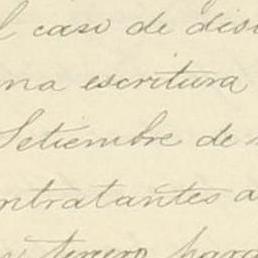 l caso de dis
na escritura
Setiembre de
ntratantes a
tercero para